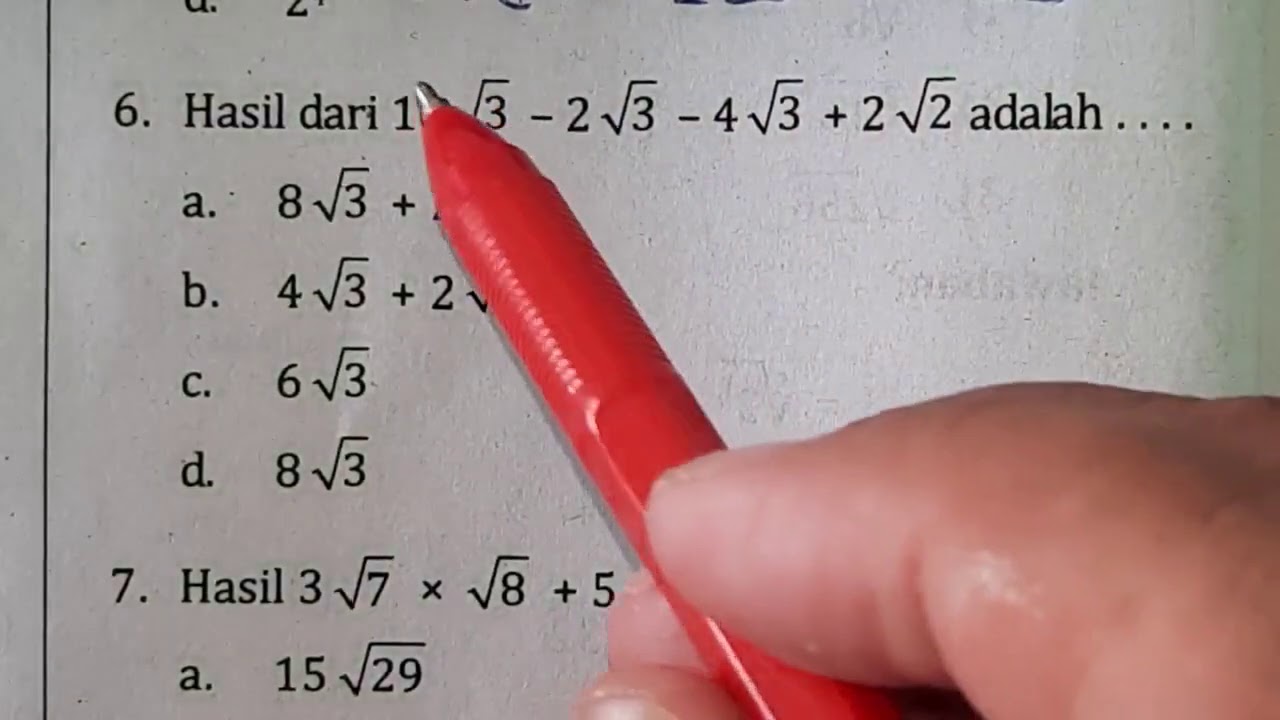 6. Hasil dari 1 √3 – 2 √3 – 4 √3 + 2 √2 adalah . . . .
a. 8 √3 +
b. 4 √3 + 2 √
c. 6 √3
d. 8 √3
7. Hasil 3 √7 × √8 + 5
a. 15 √29